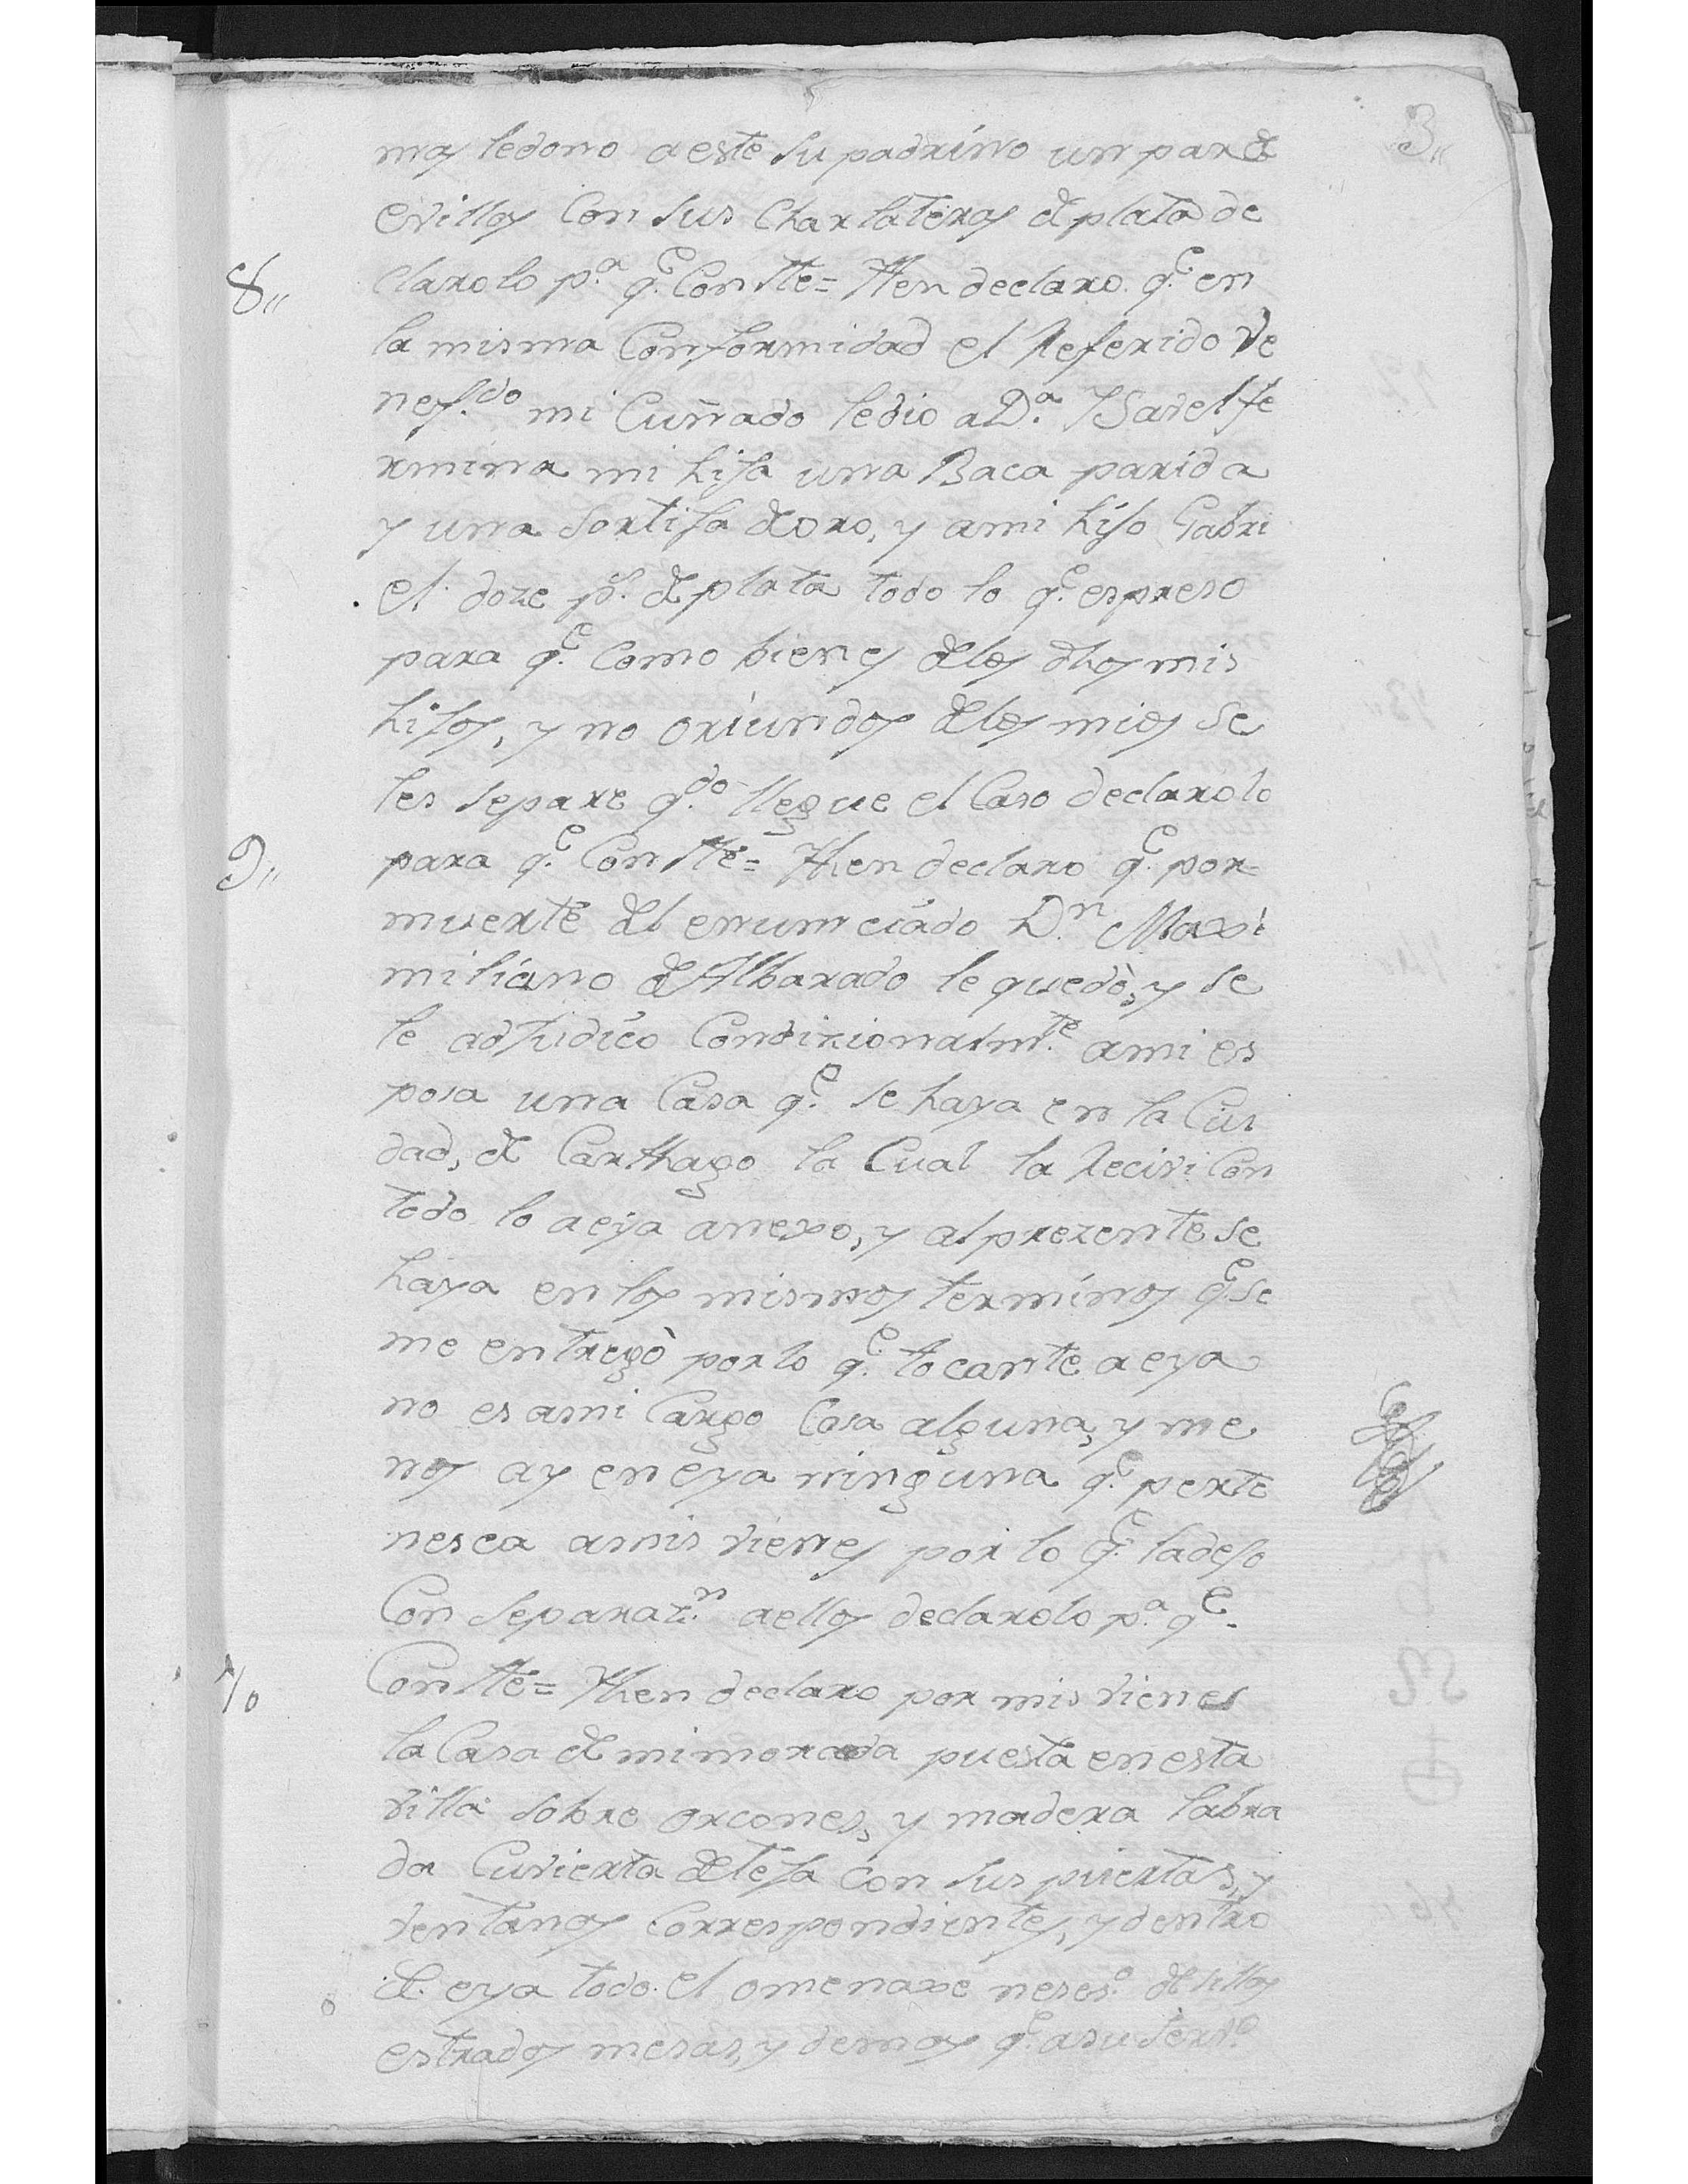 3,,
mas ledono a este Su padrino un par de
evillas Con sus Charlateras de plata de
8,, clarolo p.ª q.e Conste = Yten declaro q.e en
la misma Conformidad el Referido Ve
nef.do mi Cuñado ledio a D.ª Ysavel fe
rmina mi hija una Baca parida
y una Sortija de oro, y ami hijo Gabri
el doze p.s de plata todo lo q.e espreso
para q.e Como bienes delos dhos mis
hijos, y no oriundos delos mios se
les separe q.do llegue el Caso declarolo
9,, para q.e Conste = Yten declaro q.e por
muerte del enunciado D.n Maxi
miliano de Albarado le quedò, y se
le adjudico Condizionalm.te ami es
posa una Casa q.e se haya en la Ciu
dad, de Carthago la Cual la Recivi Con
todo lo aeya anexo, y al prezente se
haya en los mismos terminos q.e se
me entregò por lo q.e tocante a eya
no es ami Cargo Cosa alguna, y me
nos ay en eya ninguna q.e perte
nesca amis vienes por lo q.e ladejo
Con Separaz.n aellos declarolo p.a q.e
10 Conste = Yten declaro por mis vienes
la Casa de mi morada puesta en esta
villa sobre orcones, y madera labra
da Cuvierta de teja con sus puertas, y
ventanas Correspondientes, y dentro
de eya todo el omenaxe neses.o de sillas
estrados mesas, y demas q.e asu serv.o